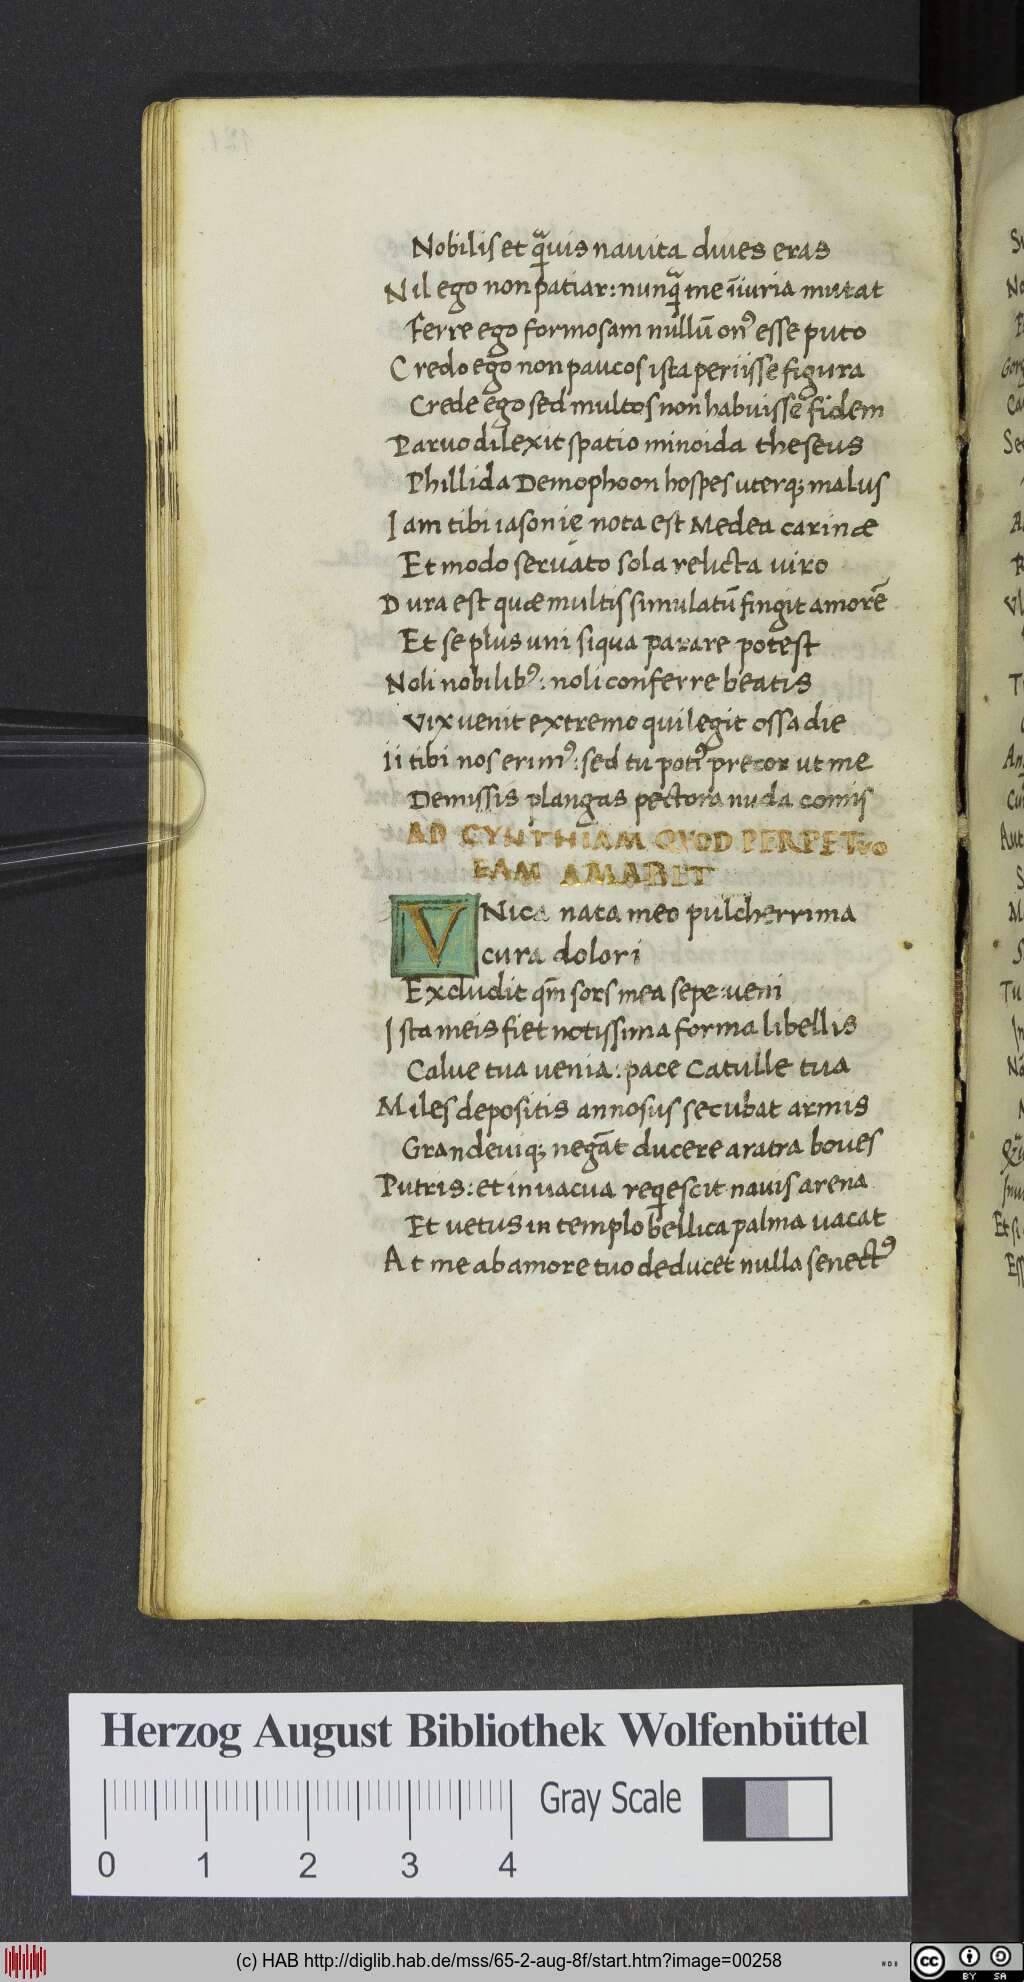 Nobilis et qͣ̄uis nauita diues eras
Nil ego non patiar: nunqͣ̄ me ĩiuria mutat
Ferre ego formosam nullũ onꝰ esse puto
Credo ego non paucos ista periisse figura
Crede ego sed multos non habuisse fidem
Paruo dilexit spatio minoida theseus
Phillida Demophoon hospes uterq; malus
Iam tibi iasonię nota est Medea carinæ
Et modo seruato sola relicta uiro
Dura est quæ multis simulatũ fingit amorẽ
Et se plus uni siqua parare potest
Noli nobilibꝰ: noli conferre beatis
Vix uenit extremo qui legit ossa die
Ii tibi nos erimꝰ: sed tu potiꝰ precor ut me
Demissis plangas pectora nuda comis
AD CYNTHIAM QVOD PERPETVO
EAM AMABIT
VNica nata meo pulcherrima
cura dolori
Excludit qm̃ sors mea sepe: ueni
Ista meis fiet notissima forma libellis
Calue tua uenia: pace Catulle tua
Miles depositis annosus secubat armis
Grandeuiq; negãt ducere aratra boues
Putris: et in uacua reqescit nauis arena
Et uetus in templo bellica palma uacat
At me ab amore tuo deducet nulla senectꝰ
Herzog August Bibliothek Wolfenbüttel
Gray Scale
0 1 2 3 4
(c) HAB http://diglib.hab.de/mss/65-2-aug-8f/start.htm?image=00258
cc BY SA